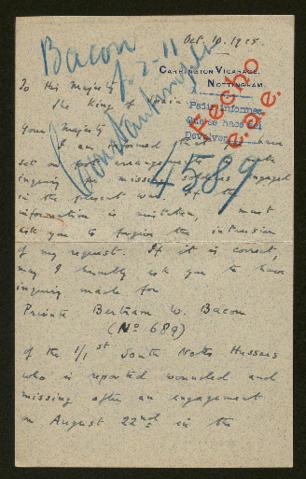 Bacon
Oct. 10. 1915
Carrington Vicarage,
Nottingham.
To His Majesty
The King of Spain
Pedir informes
Que se hace del
Devolver
Fecho
Constantinopla
4589
Your Majesty
I am informed that you have
set on foot arrangements
inquiry missing soldiers engaged
in the present war. If the
information is mistaken, must
ask you to forgive the intrusion
of my request. If it is correct,
may I humbly ask you to have
inquiry made for
Private Bertram W. Bacon
(No 689)
of the 1/1st South Notts Hussars
who is reported wounded and
missing after an engagement
on August 22nd in the